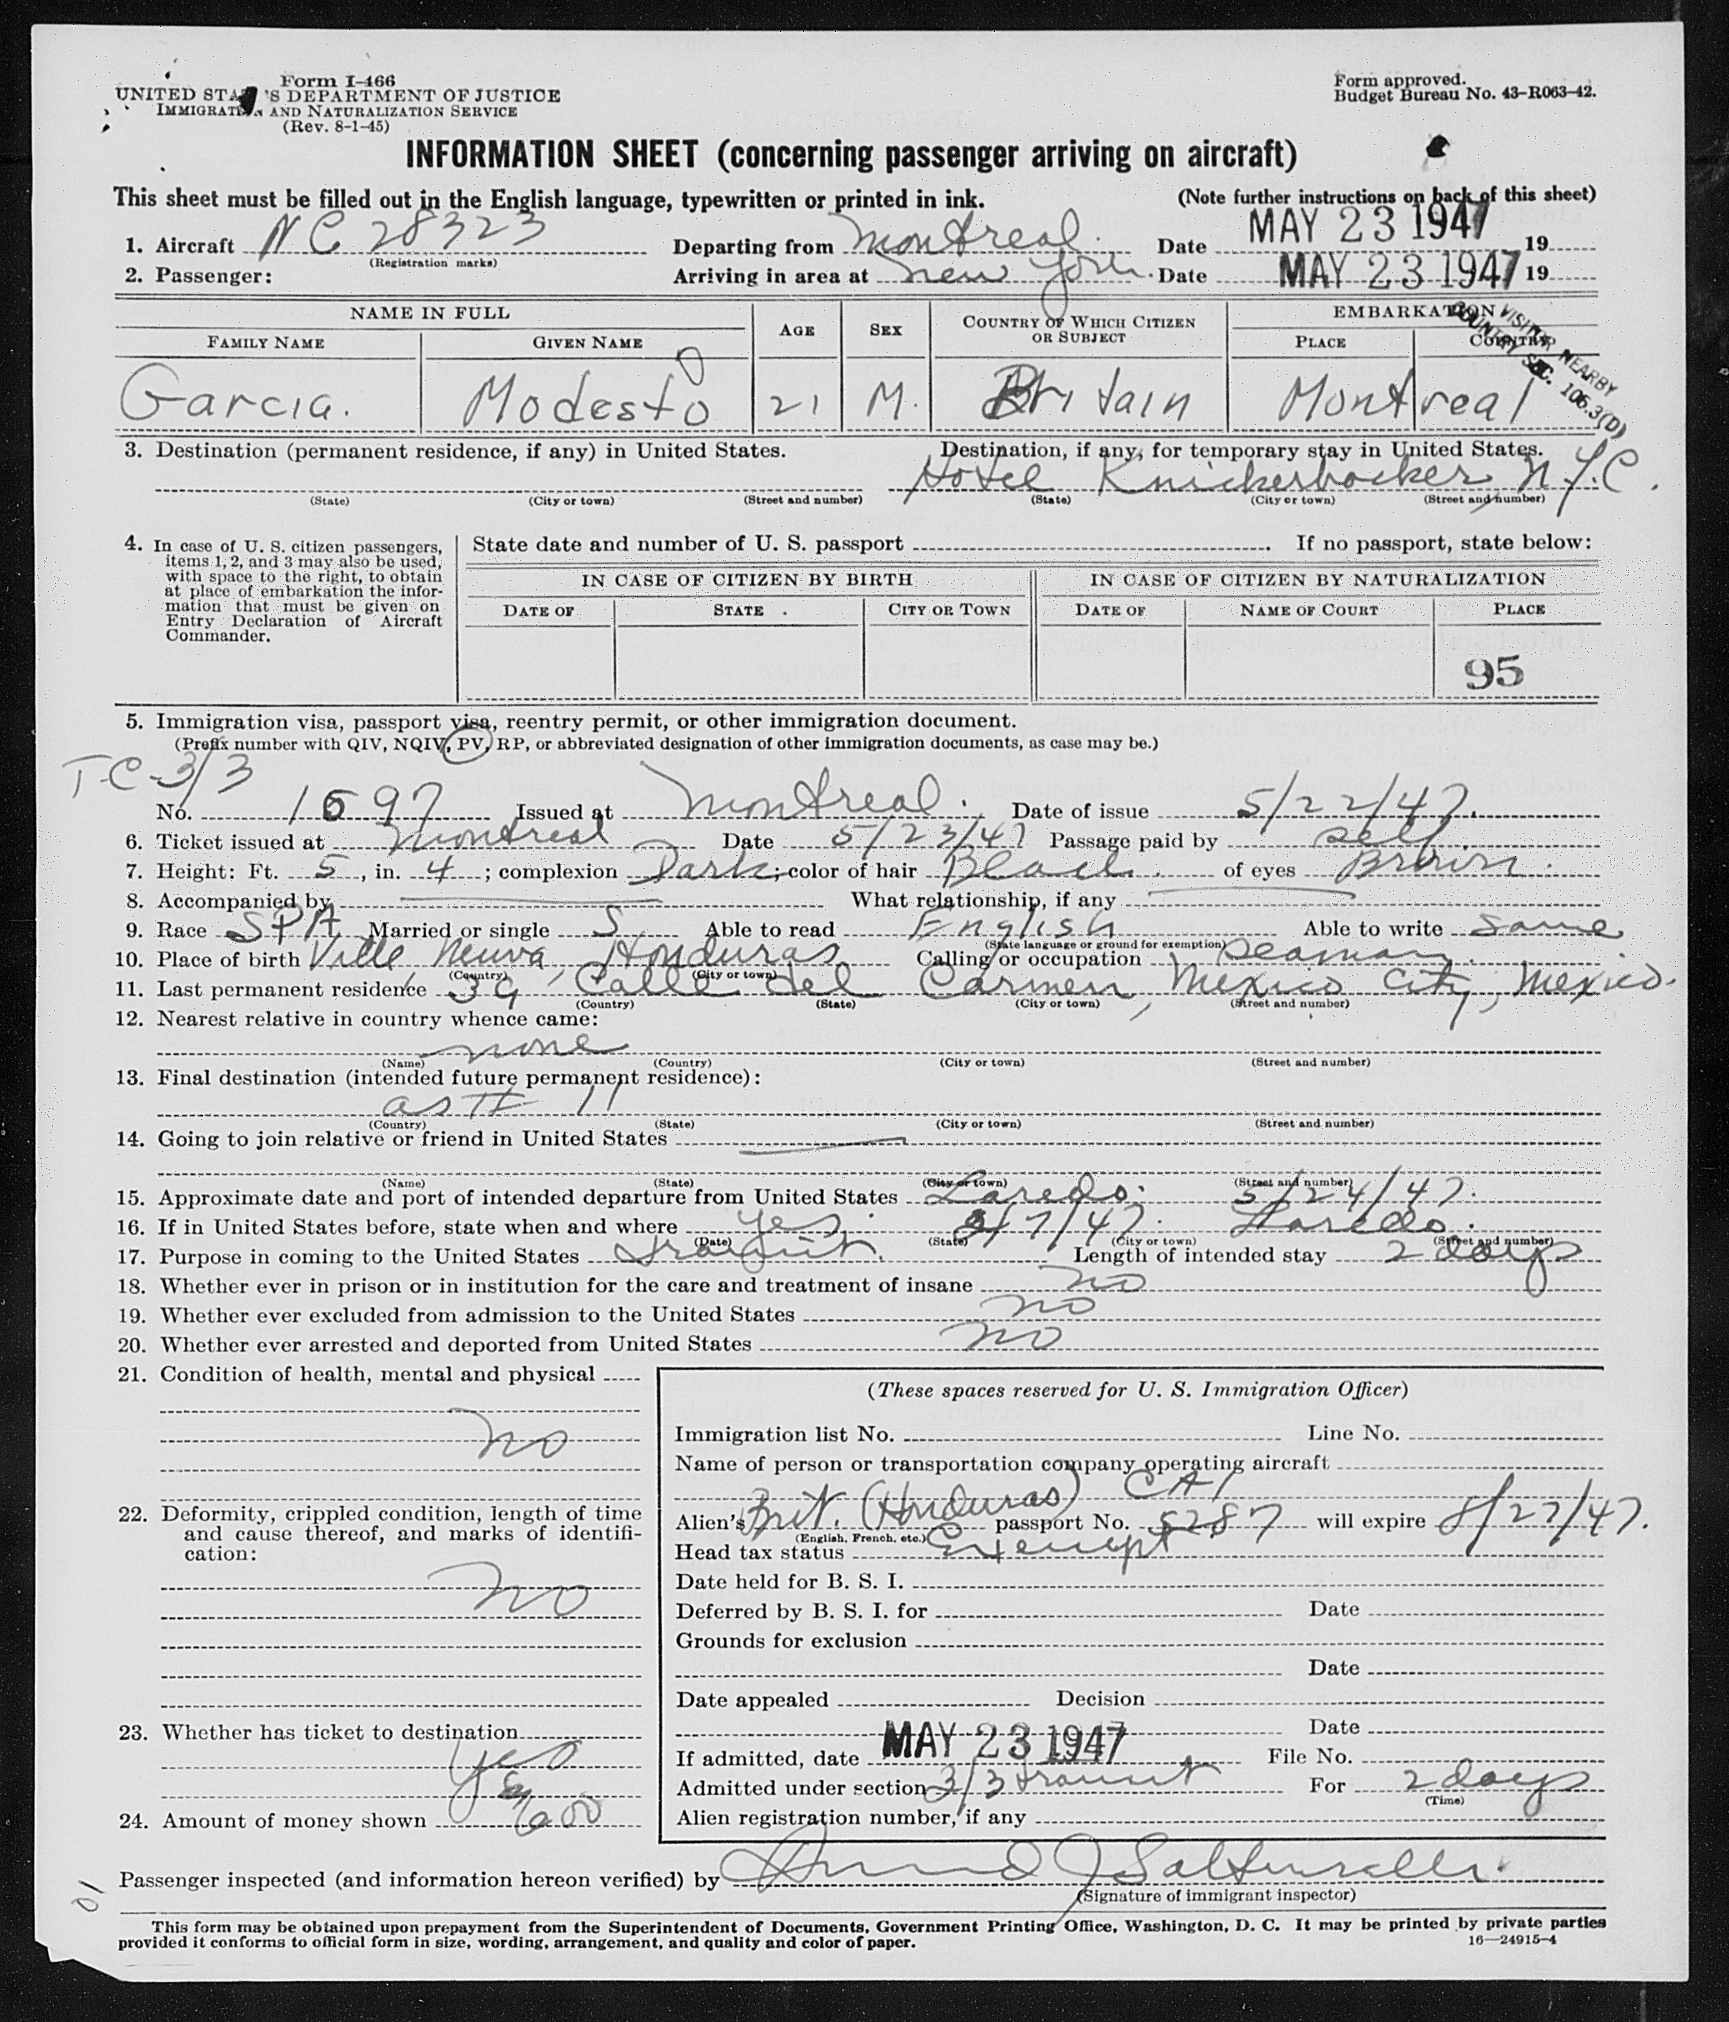 Form I-466
UNITED STATES DEPARTMENT OF JUSTICE
IMMIGRATION AND NATURALIZATION SERVICE
(Rev. 8-1-45)
Form approved.
Budget Bureau No. 43-R063-42.
INFORMATION SHEET (concerning passenger arriving on aircraft)
This sheet must be filled out in the English language, typewritten or printed in ink. (Note further instructions on back of this sheet)
1. Aircraft NC 28323 Departing from Montreal Date MAY 23 1947 19
(Registration marks)
2. Passenger: Arriving in area at New York Date MAY 23 1947 19
NAME IN FULL AGE SEX COUNTRY OF WHICH CITIZEN OR SUBJECT EMBARKATION
FAMILY NAME GIVEN NAME PLACE COUNTRY
VISITOR NEARBY
COUNTRY SEC. 106.3(D)
Garcia. Modesto 21 M. Britain Montreal
3. Destination (permanent residence, if any) in United States. Destination, if any, for temporary stay in United States.
Hotel Knickerbocker, N.Y.C.
(State) (City or town) (Street and number) (State) (City or town) (Street and number)
4. In case of U. S. citizen passengers, items 1, 2, and 3 may also be used, with space to the right, to obtain at place of embarkation the information that must be given on Entry Declaration of Aircraft Commander.
State date and number of U. S. passport . If no passport, state below:
IN CASE OF CITIZEN BY BIRTH IN CASE OF CITIZEN BY NATURALIZATION
DATE OF STATE CITY OR TOWN DATE OF NAME OF COURT PLACE
95
5. Immigration visa, passport visa, reentry permit, or other immigration document.
(Prefix number with QIV, NQIV, PV, RP, or abbreviated designation of other immigration documents, as case may be.)
T-C-3/3
No. 1697 Issued at Montreal. Date of issue 5/22/47.
6. Ticket issued at Montreal Date 5/23/47 Passage paid by self.
7. Height: Ft. 5, in. 4; complexion Dark; color of hair Black. of eyes Brown.
8. Accompanied by What relationship, if any
9. Race SPA Married or single S Able to read English Able to write same
(State language or ground for exemption)
10. Place of birth Ville Neuva, Honduras Calling or occupation seaman.
(Country) (City or town)
11. Last permanent residence 39 Calle del Carmen, Mexico City, Mexico.
(Country) (State) (City or town) (Street and number)
12. Nearest relative in country whence came:
none
(Name) (Country) (City or town) (Street and number)
13. Final destination (intended future permanent residence):
as # 11
(Country) (State) (City or town) (Street and number)
14. Going to join relative or friend in United States
(Name) (State) (City or town) (Street and number)
15. Approximate date and port of intended departure from United States Laredo. 5/24/47.
16. If in United States before, state when and where yes. /7/47. Laredo.
(Date) (State) (City or town) (Street and number)
17. Purpose in coming to the United States transit. Length of intended stay 2 days
18. Whether ever in prison or in institution for the care and treatment of insane no
19. Whether ever excluded from admission to the United States no
20. Whether ever arrested and deported from United States no
21. Condition of health, mental and physical
no
22. Deformity, crippled condition, length of time and cause thereof, and marks of identification:
no
23. Whether has ticket to destination
yes
24. Amount of money shown
(These spaces reserved for U. S. Immigration Officer)
Immigration list No. Line No.
Name of person or transportation company operating aircraft
CAI
Alien's Brit. (Honduras) passport No. 5287 will expire 8/27/47.
(English, French, etc.)
Head tax status Exempt
Date held for B. S. I.
Deferred by B. S. I. for Date
Grounds for exclusion
Date
Date appealed Decision
Date
If admitted, date MAY 23 1947 File No.
Admitted under section 3/3 transit For 2 days
(Time)
Alien registration number, if any
Passenger inspected (and information hereon verified) by
(Signature of immigrant inspector)
10
This form may be obtained upon prepayment from the Superintendent of Documents, Government Printing Office, Washington, D. C. It may be printed by private parties
provided it conforms to official form in size, wording, arrangement, and quality and color of paper.
16—24915-4